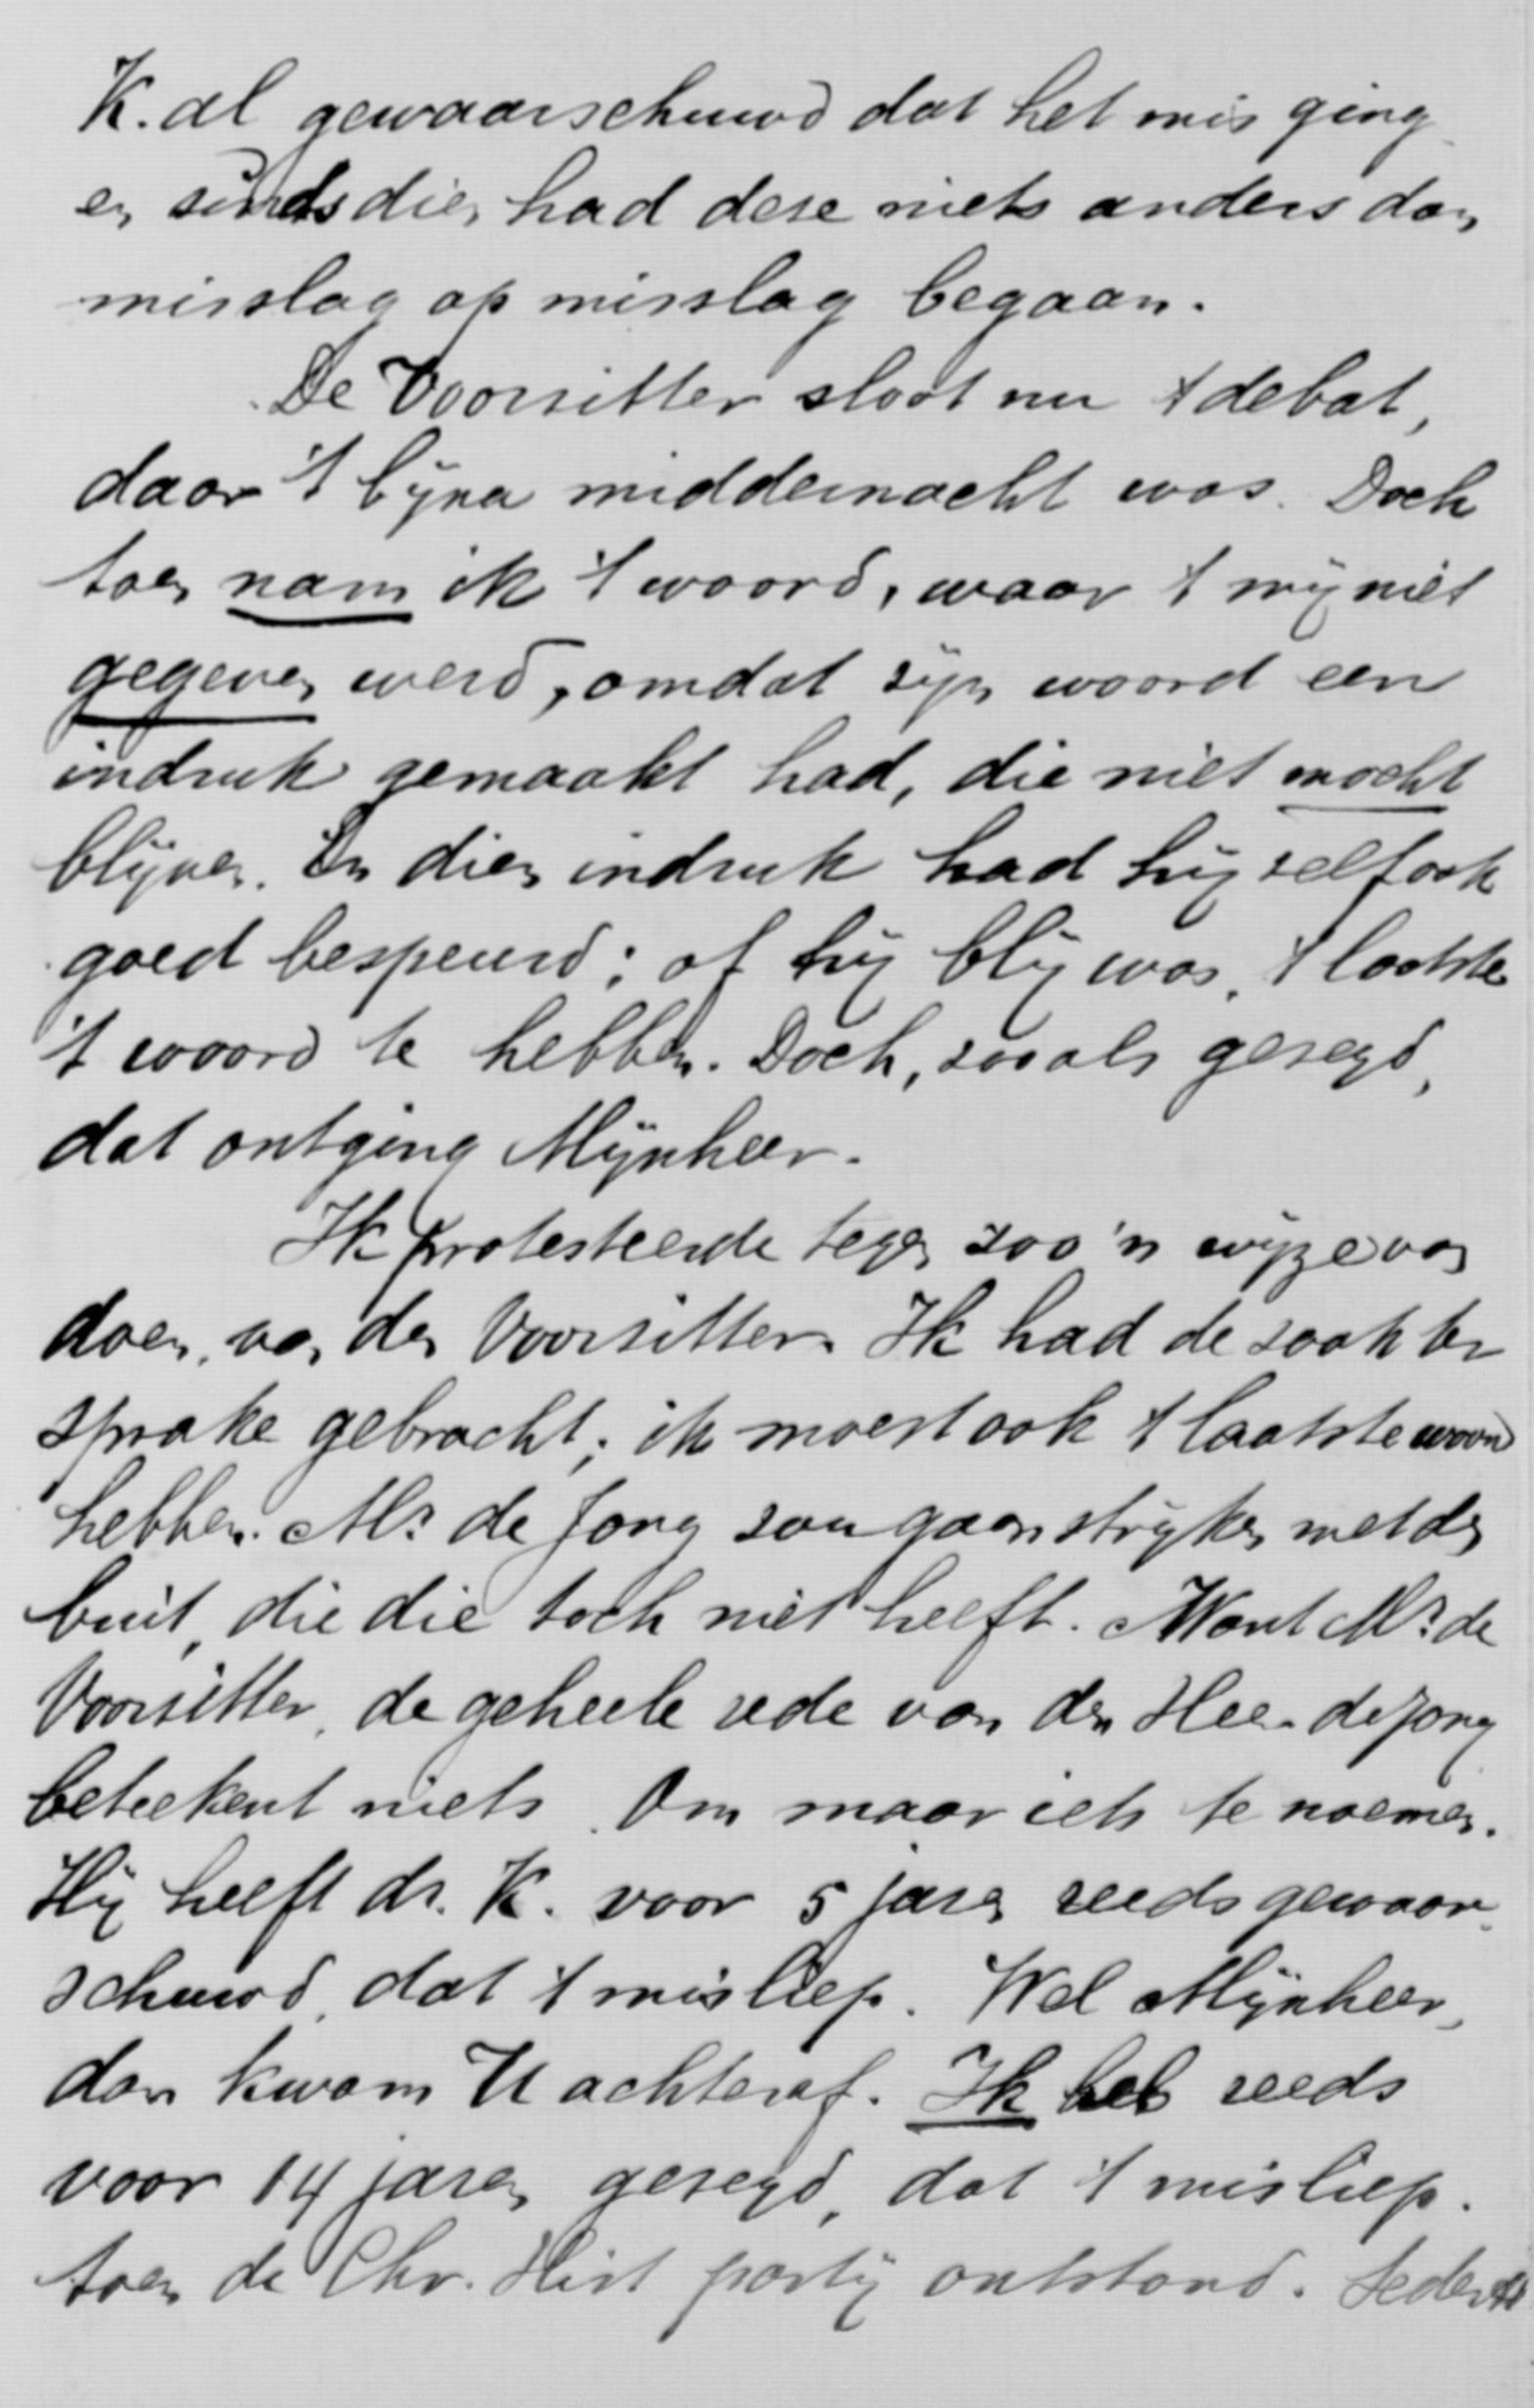 K. al gewaarschuwd dat het mis ging
en sindsdien had deze niets anders dan
misslag op misslag begaan.
De Voorzitter sloot nu 't debat,
daar 't bijna middernacht was. Doch
toen nam ik 't woord, waar 't mij niet
gegeven werd, omdat zijn woord een
indruk gemaakt had, die niet mocht
blijven. En dien indruk had hij zelf ook
goed bespeurd; of hij blij was, 't laatste
't woord te hebben. Doch, zooals gezegd,
dat ontging Mijnheer.
Ik protesteerde tegen zoo'n wijze van
doen, van den Voorzitter. Ik had de zaak ter
sprake gebracht; ik moest ook 't laatste woord
hebben. Mr. de Jong zou gaan strijken met den
buit, die die toch niet heeft. Want Mr. de
Voorzitter, de geheele rede van den Heer de Jong
beteekent niets. Om maar iets te noemen.
Hij heeft dr. K. voor 5 jaren reeds gewaar-
schuwd, dat 't misliep. Wel Mijnheer,
dan kwam U achteraf. Ik heb reeds
voor 14 jaren gezegd, dat 't misliep.
toen de Chr. Hist partij ontstond. Sederts